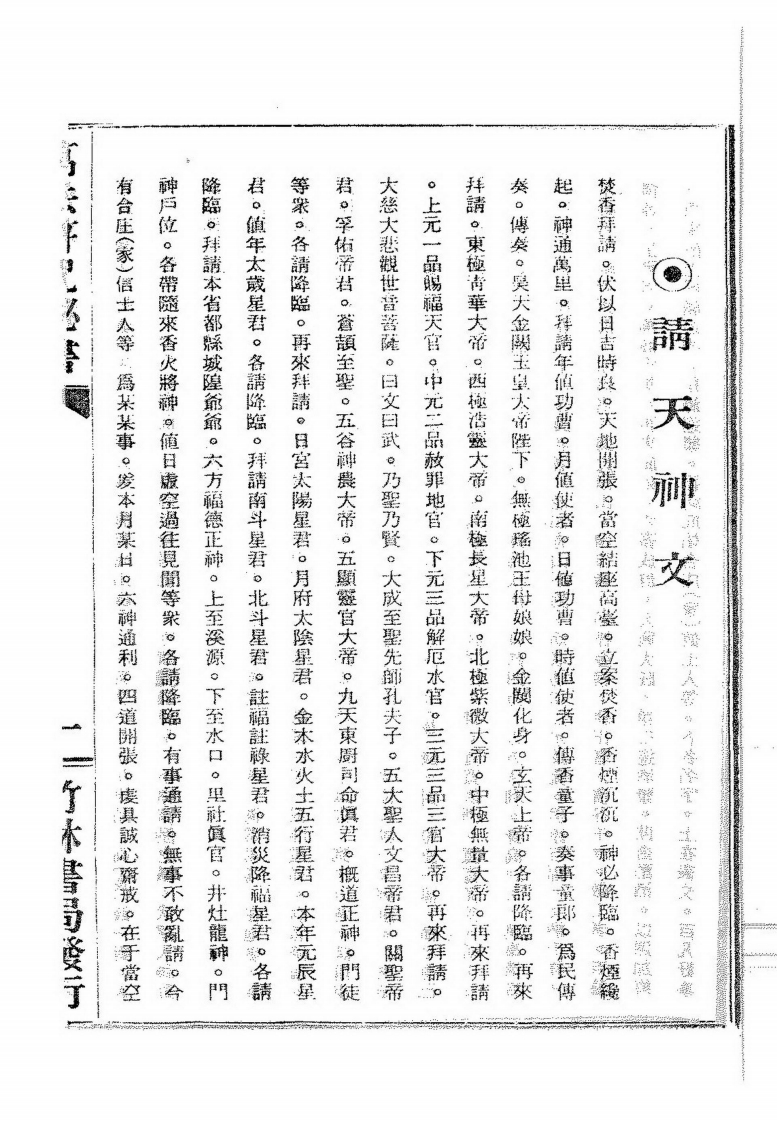 請天神文
焚香拜請。伏以日吉時良。天地開張。當空結座高臺。立案焚香。香煙沉沉。神必降臨。香煙纔
起。神通萬里。拜請年值功曹。月值使者。日值功曹。時值使者。傳香童子。奏事童郎。爲民傳
奏。傳奏。昊天金闕玉皇大帝陛下。無極瑤池王母娘娘。金闕化身。玄天上帝。各請降臨。再來
拜請。東極青華大帝。西極浩靈大帝。南極長星大帝。北極紫微大帝。中極無量大帝。再來拜請
。上元一品賜福天官。中元二品赦罪地官。下元三品解厄水官。三元三品三官大帝。再來拜請。
大慈大悲觀世音菩薩。曰文曰武。乃聖乃賢。大成至聖先師孔夫子。五大聖人文昌帝君。關聖帝
君。孚佑帝君。蒼頡至聖。五谷神農大帝。五顯靈官大帝。九天東廚司命眞君。概道正神。門徒
等衆。各請降臨。再來拜請。日宮太陽星君。月府太陰星君。金木水火土五行星君。本年元辰星
君。值年太歲星君。各請降臨。拜請南斗星君。北斗星君。註福註祿星君。消災降福星君。各請
降臨。拜請本省都縣城隍爺爺。六方福德正神。上至溪源。下至水口。里社眞官。井灶龍神。門
神戶位。各帶隨來香火將神。值日虛空過往見聞等衆。各請降臨。有事通請。無事不敢亂請。今
有台庄(家)信士人等。爲某某事。爰本月某日。六神通利。四道開張。虔具誠心齋戒。在于當空
一 竹林書局發行